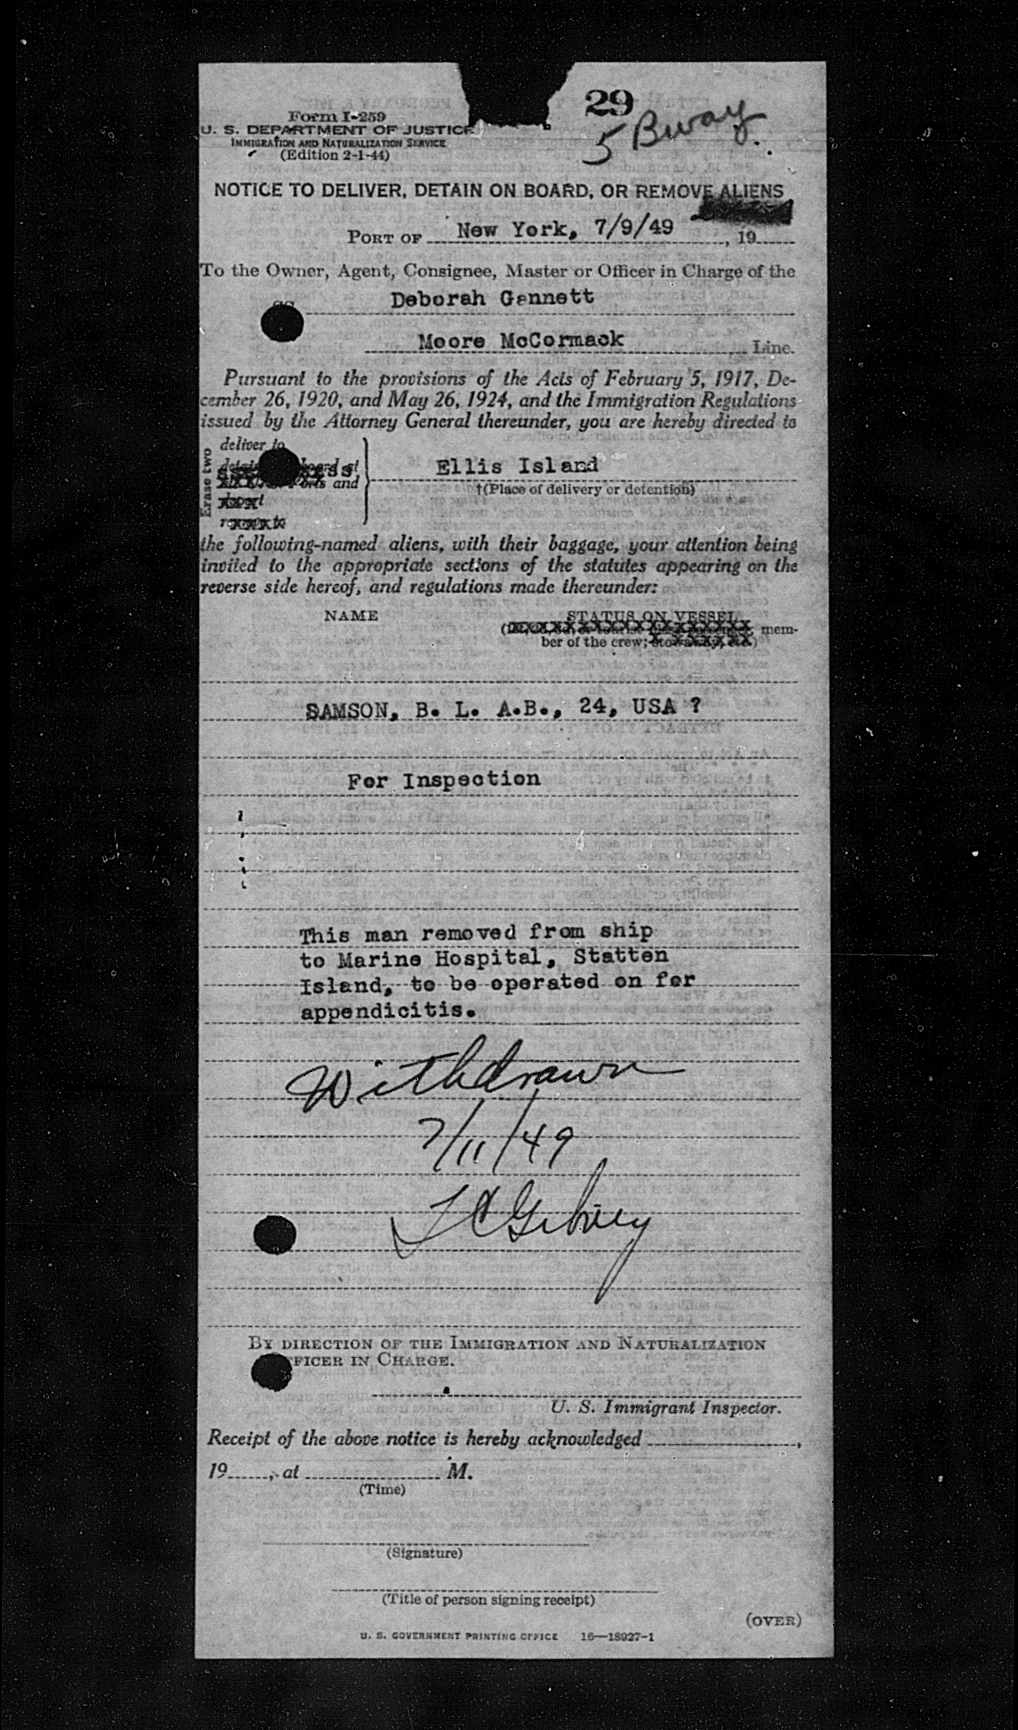 29
5 Bway.
Form I-259
U. S. DEPARTMENT OF JUSTICE
IMMIGRATION AND NATURALIZATION SERVICE
(Edition 2-1-44)
NOTICE TO DELIVER, DETAIN ON BOARD, OR REMOVE ALIENS
PORT OF New York, 7/9/49, 19
To the Owner, Agent, Consignee, Master or Officer in Charge of the
SS Deborah Gannett
Moore McCormack Line.
Pursuant to the provisions of the Acts of February 5, 1917, De-
cember 26, 1920, and May 26, 1924, and the Immigration Regulations
issued by the Attorney General thereunder, you are hereby directed to
Erase two
deliver to
board at
and
Ellis Island
†(Place of delivery or detention)
the following-named aliens, with their baggage, your attention being
invited to the appropriate sections of the statutes appearing on the
reverse side hereof, and regulations made thereunder:
NAME STATUS ON VESSEL
mem-
ber of the crew;
SAMSON, B. L. A.B., 24, USA ?
For Inspection
This man removed from ship
to Marine Hospital, Statten
Island, to be operated on for
appendicitis.
Withdrawn
7/11/49
BY DIRECTION OF THE IMMIGRATION AND NATURALIZATION
FICER IN CHARGE.
U. S. Immigrant Inspector.
Receipt of the above notice is hereby acknowledged ,
19 , at M.
(Time)
(Signature)
(Title of person signing receipt)
(OVER)
U. S. GOVERNMENT PRINTING OFFICE 16—18927-1